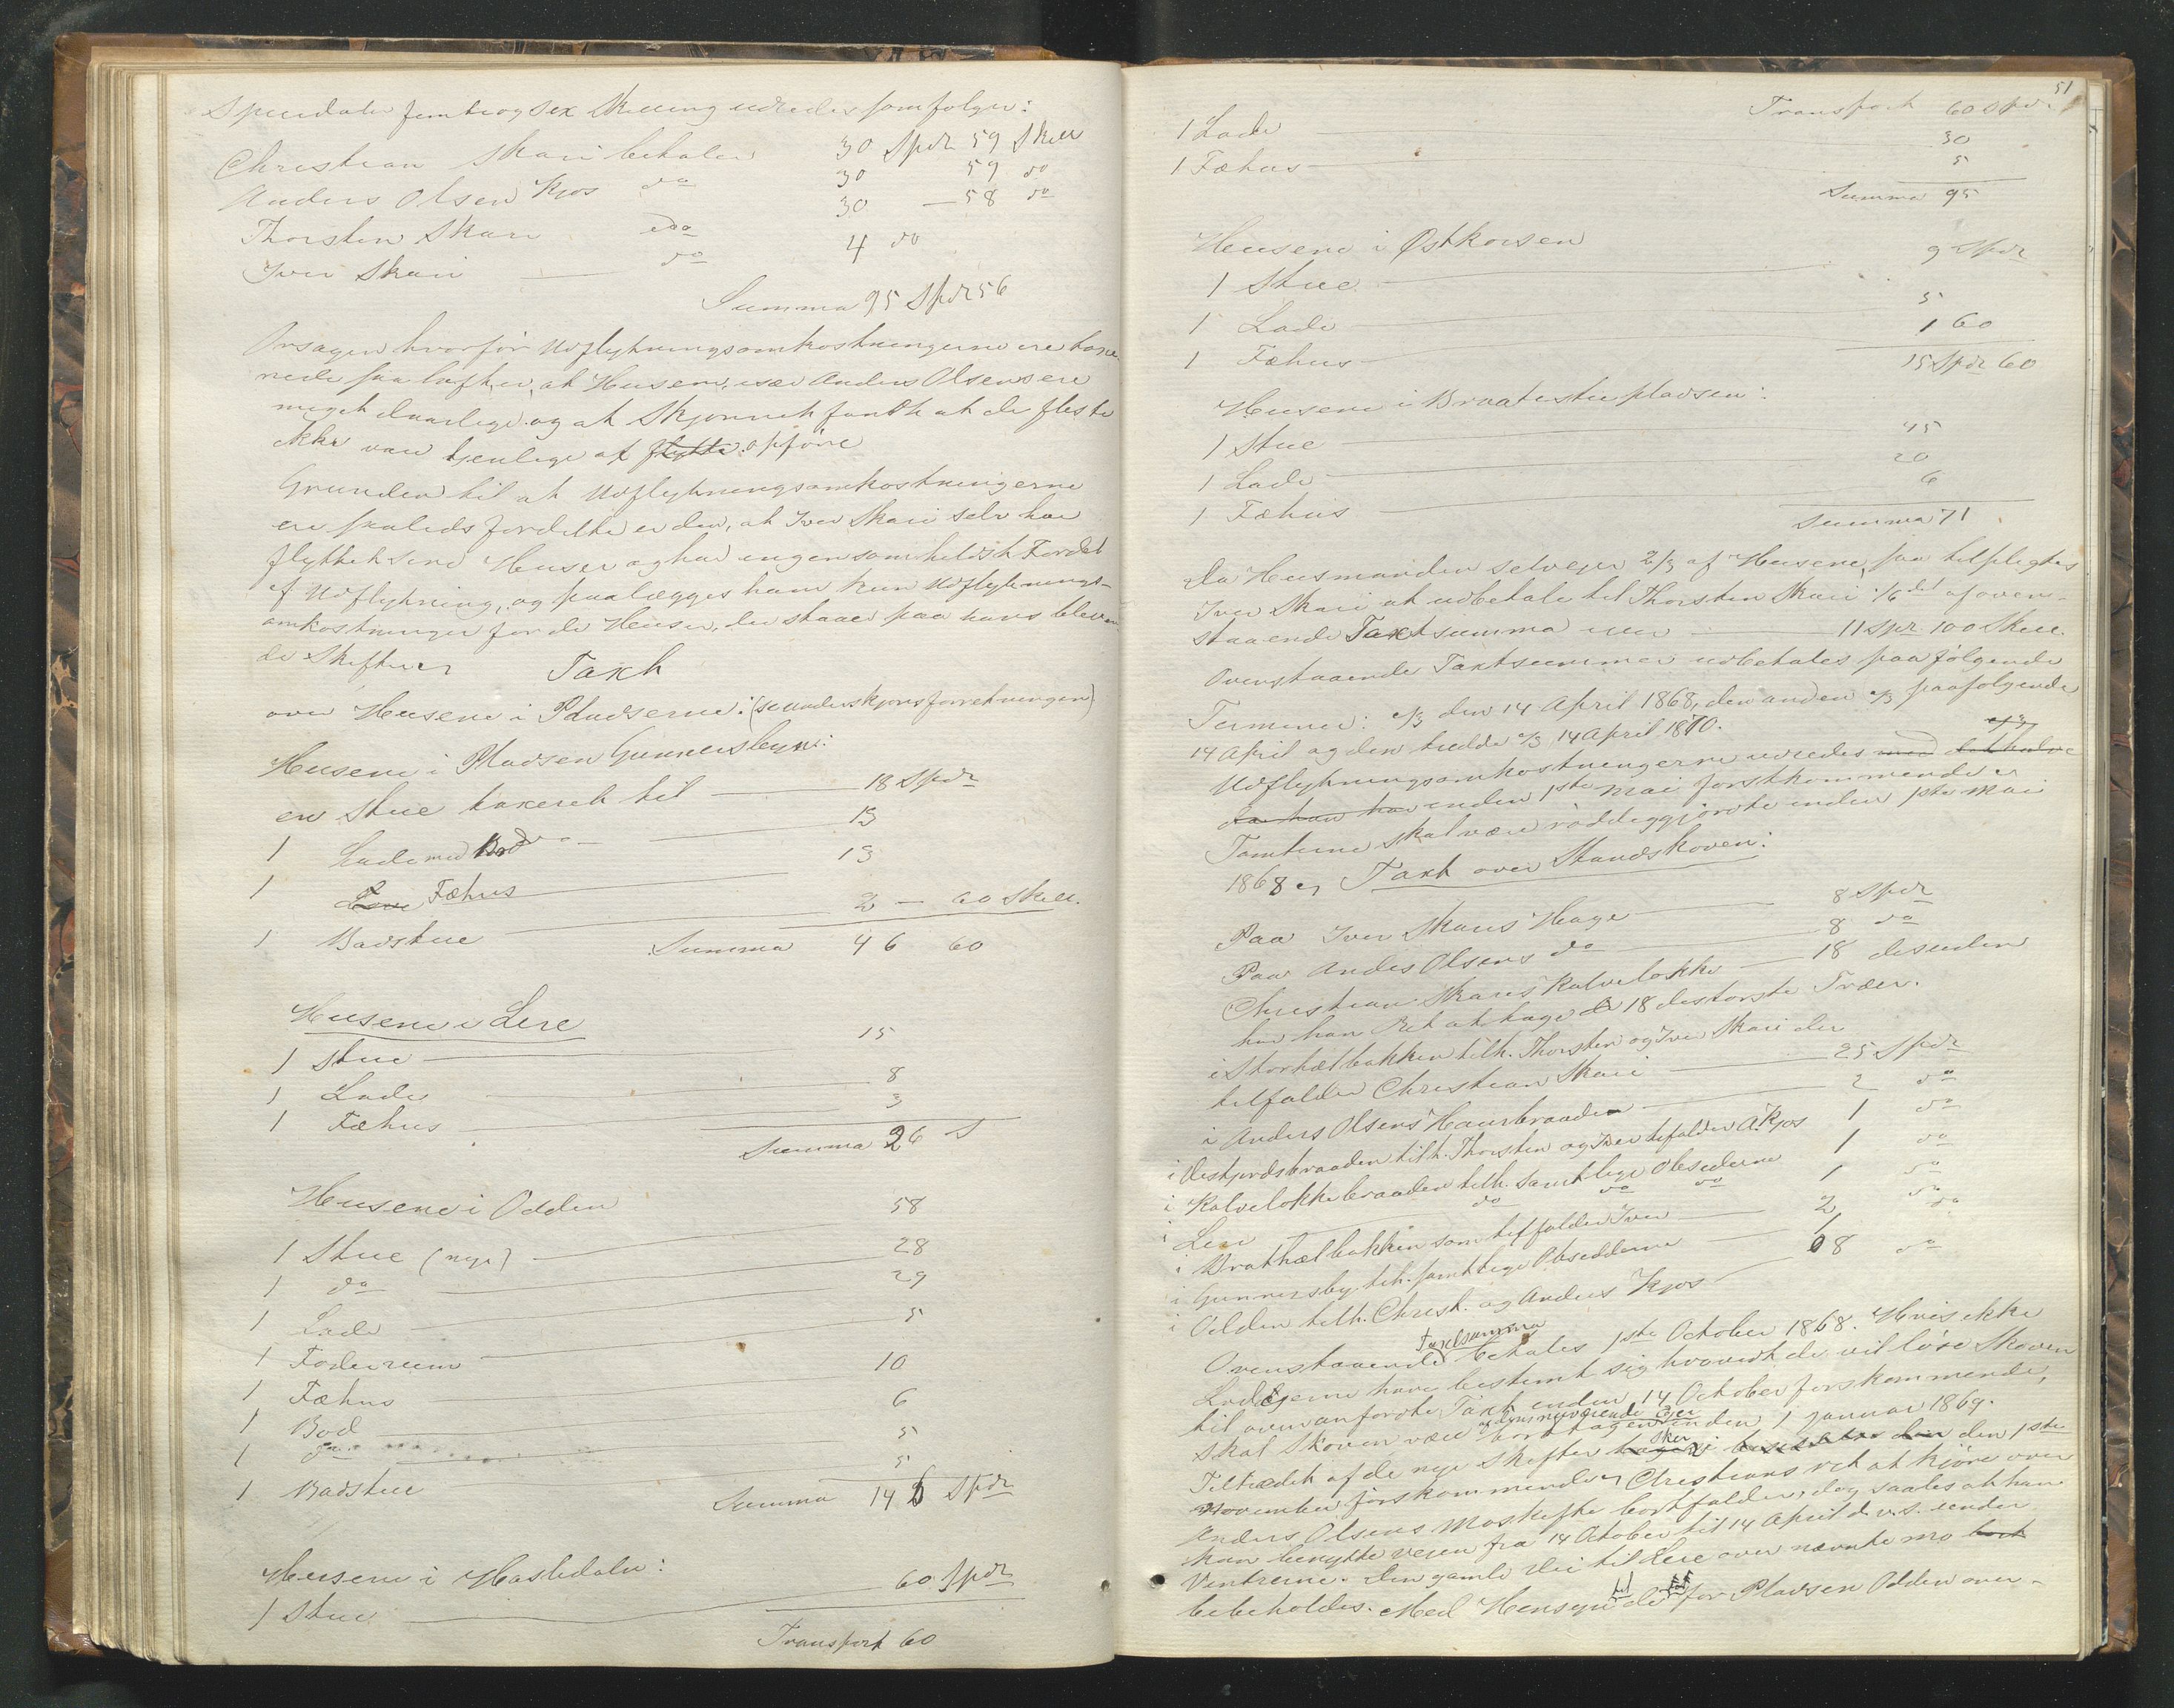 Speciedaler femti og sex Skilling udredes som følger:
Christian Skari betaler 30 Spdr 59 Skill
Anders Olsen Kjos do 30 59 do
Thorsten Skari do 30 — 58 do
Iver Skari — do 4 do
Summa 95 Spdr 56
Orsagen hvorfor Udflytningsomkostningerne ere taxe-
rede saa høit er, at Husene, især Anders Olsens ere
meget daarlige og at Skjønnet fandt at de fleste
ikke vare tjenlige at flytte opføre
Grunden til at Udflytningsomkostningerne
ere saaledes fordelte er den, at Iver Skari selv har
flyttet sine Huser og har ingensomhelst Fordel
af Udflytning, og paalægges ham kun Udflytnings-
omkostninger for de Huser, der staaer paa hans bleven-
de Skifter
Taxt
over Husene i Pladserne: (se underskjønsforretningen)
Husene i Pladsen Gunnersbyen:
en Stue taxeret til — 18 Spdr
1 Lade med Bod do — 13
1 Love Fæhus 13
1 Badstue 2 — 60 Skill.
Summa 46 60
Husene i Lere
1 Stue 15
1 Lade 8
1 Fæhus 3
Summa 26 S
Husene i Odden
1 Stue (nye) 58
1 do 28
1 Lade 29
1 Foderrum 5
1 Fæhus 10
1 Bod 6
1 do 5
1 Badstue 5
Summa 146 Spdr
Husene i Hasledalen:
1 Stue 60 Spdr
Transport 60
51
Transport 60 Spdr
1 Lade 30
1 Fæhus 5
Summa 95
Husene i Østkorsen
1 Stue 9 Spdr
1 Lade 5
1 Fæhus 1 60
15 Spdr 60
Husene i Braatestupladsen:
1 Stue 45
1 Lade 20
1 Fæhus 6
Summa 71
Da Husmanden selv ejer 2/3 af Husene, saa tilpligtes
Iver Skari at udbetale til Thorsten Skari 1/6del af oven-
staaende Taxtsumma — 11 Spdr 100 Skill.
Ovenstaaende Taxtsummer udbetales paa følgende
Terminer: 1/3 den 14 April 1868, den anden 1/3 paafølgende
14 April og den tredde 1/3 14 April 1870.
Udflytningsomkostningerne udredes med det halve
inden 1ste Mai førstkommende er
Tomterne skal være røddiggjorte inden 1ste Mai
1868 er Taxt over Standskoven:
Paa Iver Skaris Hage — 8 Spdr
Paa Anders Olsens do — 8 do
Christian Skaris Kalveløkke — 18 desuden
har han Ret at tage de 18 de største Træer.
i Storhælbakken tilh. Thorsten og Iver Skari der
tilfalder Christian Skari — 25 Spdr
i Anders Olsens Haurbraaden — 2 do
i Vestjordsbraaden tilh. Thorsten og Iver tilfalder A. Kjos 1 do
i Kalveløkkebraaden tilh. samtlige Obsidderne 1 do
i Lere do do do 1 do
i Brathælbakken som tilfalder Iver — 2 do
i Gunnersby tilh. samtlige Obsidderne — 1 do
i Odden tilh. Christ. og Anders Kjos — 8 do
Taxtsumma
Ovenstaaende betales 1ste October 1868. Hvis ikke
Lodejerne have bestemt sig hvorvidt de vil løse Skoven
til ovenanførte Taxt inden 14 October førskommende,
af dens nuværende Ejer
skal Skoven være borttagen inden 1 Januar 1869.
Tiltrædet af de nye Skifter sker den 1ste
November førskommende er Christians ret at kjøre over
Anders Olsens Moskifte bortfalder, dog saales at han
kan benytte vejen fra 14 October til 14 April d. v. s. under
Vintrene. Den gamle Vei til Lere over nævnte mo bort
bebeholdes. Med Hensyn til for Pladsen Odden over-